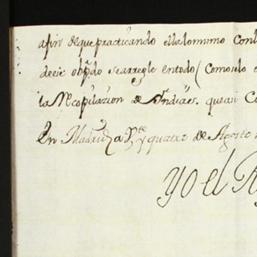 afin de que practicando ella lo mismo con l
decir obpdo se arregle en todo (como selo e
la Recopilacion de Indias, que asi co
En Madrid a Vte y quatro de Agosto
yo el R